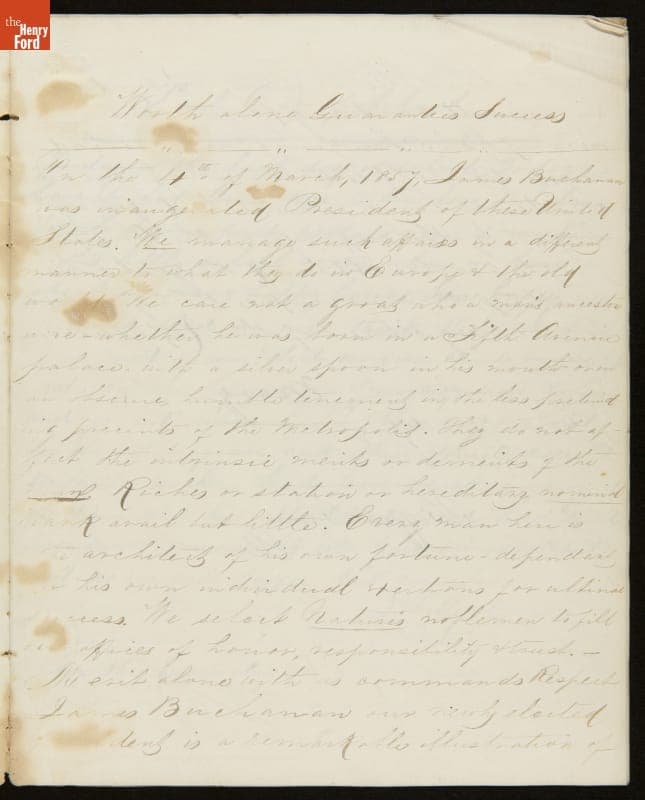 the
Henry
Ford
Worth alone Guaranties Success
On the 4th of March, 1857, James Buchanan
was inaugerated President of these United
States. We manage such affairs in a different
manner to what they do in Europe & the old
world. We care not a groat who a man's ancestors
were - whether he was born in a Fifth Avenue
palace with a silver spoon in his mouth or in
an obscure humble tenement in the less pretend
ing precints of the Metropolis. They do not af-
fect the intrinsic merits or demerits of the
Riches or station or hereditary
rank avail but little. Every man here is
architect of his own fortune - dependant
his own individual exertions for ultimate
success. We select Natures noblemen to fill
offices of honor, responsibility & trust. -
Merit alone with us commands Respect
James Buchanan our newly elected
dent is a remarkable illustration of